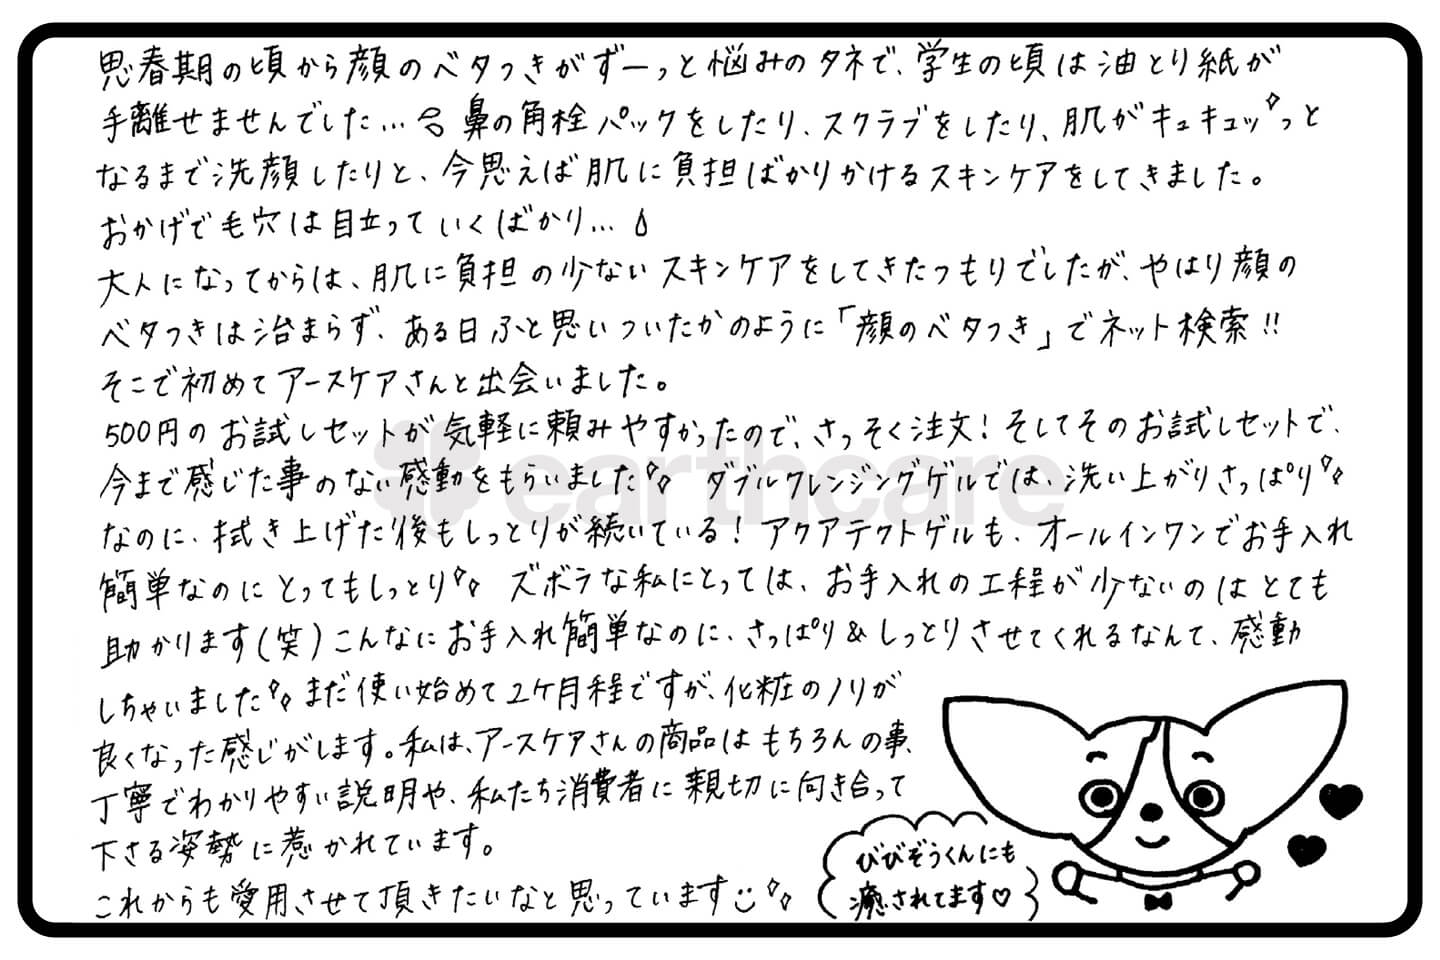 思春期の頃から顔のベタつきがずーっと悩みのタネで、学生の頃は油とり紙が
手離せませんでした… 鼻の角栓パックをしたり、スクラブをしたり、肌がキュキュッっと
なるまで洗顔したりと、今思えば肌に負担ばかりかけるスキンケアをしてきました。
おかげで毛穴は目立っていくばかり…
大人になってからは、肌に負担の少ないスキンケアをしてきたつもりでしたが、やはり顔の
ベタつきは治まらず、ある日ふと思いついたかのように「顔のベタつき」でネット検索!!
そこで初めてアースケアさんと出会いました。
500円のお試しセットが気軽に頼みやすかったので、さっそく注文!そしてそのお試しセットで、
今まで感じた事のない感動をもらいました ダブルクレンジングゲルでは、洗い上がりさっぱり
なのに、拭き上げた後もしっとりが続いている!アクアテクトゲルも、オールインワンでお手入れ
簡単なのにとってもしっとり ズボラな私にとっては、お手入れの工程が少ないのはとても
助かります(笑)こんなにお手入れ簡単なのに、さっぱり&しっとりさせてくれるなんて、感動
しちゃいました まだ使い始めて2ケ月程ですが、化粧のノリが
良くなった感じがします。私は、アースケアさんの商品はもちろんの事、
丁寧でわかりやすい説明や、私たち消費者に親切に向き合って
下さる姿勢に惹かれています。
これからも愛用させて頂きたいなと思っています
びびぞうくんにも
癒されてます♡
earthcare